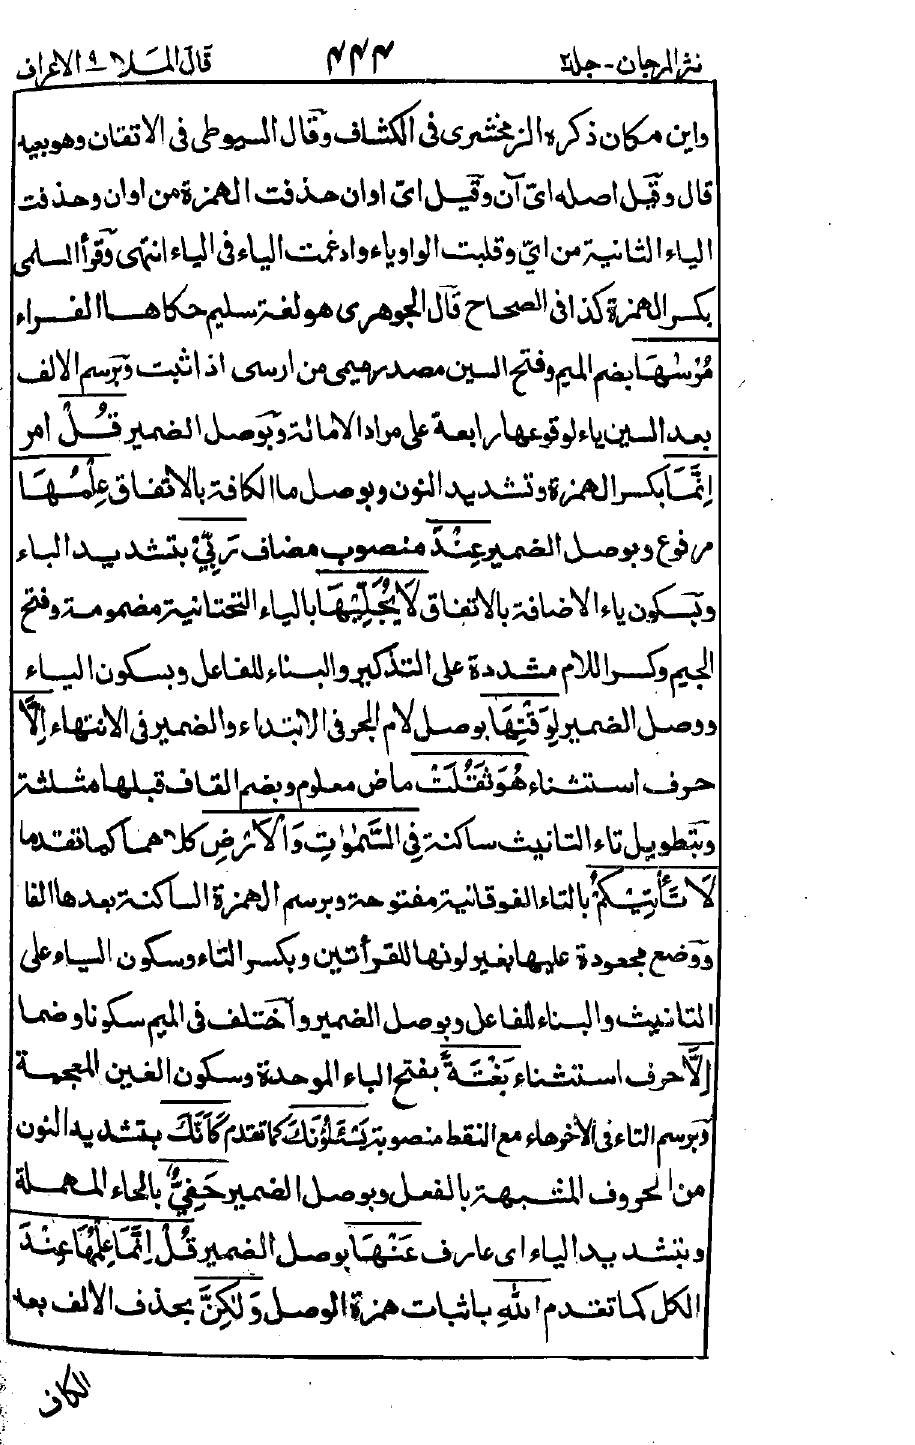 نثر المرجان - جلد٢ ٤٤٤ قال الملا - ٩ الاعراف
واين مكان ذكره الزمخشرى فى الكشاف وقال السيوطى فى الاتقان وهو بعيد
قال وقيل اصله اىّ آن وقيل اىّ اوان حذفت الهمزة من اوان وحذفت
الياء الثانية من ايّ وقلبت الواو ياء وادغمت الياء فى الياء انتهى وقرأ السلمى
بكسر الهمزة كذا فى الصحاح قال الجوهرى هو لغة سليم حكاها الفراء
مُرْسٰىهَا بضم الميم وفتح السين مصدر ميمى من ارسى اذا ثبت وبرسم الالف
بعد السين ياء لوقوعها رابعة على مراد الامالة وبوصل الضمير قُلْ امر
اِنَّمَا بكسر الهمزة وتشديد النون وبوصل ما الكافة بالاتفاق عِلْمُهَا
مرفوع وبوصل الضمير عِنْدَ منصوب مضاف رَبِّيْ بتشديد الباء
وبسكون ياء الاضافة بالاتفاق لَا يُجَلِّيْهَا بالياء التحتانية مضمومة وفتح
الجيم وكسر اللام مشددة على التذكير والبناء للفاعل وبسكون الياء
ووصل الضمير لِوَقْتِهَا بوصل لام الجر فى الابتداء والضمير فى الانتهاء اِلَّا
حرف استثناء هُوَ ثَقُلَتْ ماض معلوم وبضم القاف قبلها مثلثة
وبتطويل تاء التانيث ساكنة فِي السَّمٰوٰتِ وَالْاَرْضِ كلاهما كما تقدما
لَا تَأْتِيْكُمْ بالتاء الفوقانية مفتوحة وبرسم الهمزة الساكنة بعدها الفا
ووضع مجعودة عليها بغير لونها للقرأتين وبكسر التاء وسكون الياء على
التانيث والبناء للفاعل وبوصل الضمير واختلف فى الميم سكونا وضما
اِلَّا حرف استثناء بَغْتَةً بفتح الباء الموحدة وسكون الغين المعجمة
وبرسم التاء فى الأخر هاء مع النقط منصوبة يَسْـَٔلُوْنَكَ كما تقدم كَاَنَّكَ بتشديد النون
من الحروف المشبهة بالفعل وبوصل الضمير حَفِيٌّ بالحاء المهملة
وبتشديد الياء اى عارف عَنْهَا بوصل الضمير قُلْ اِنَّمَا عِلْمُهَا عِنْدَ
الكل كما تقدم اللّٰهِ باثبات همزة الوصل وَلٰكِنَّ بحذف الالف بعد
الكاف